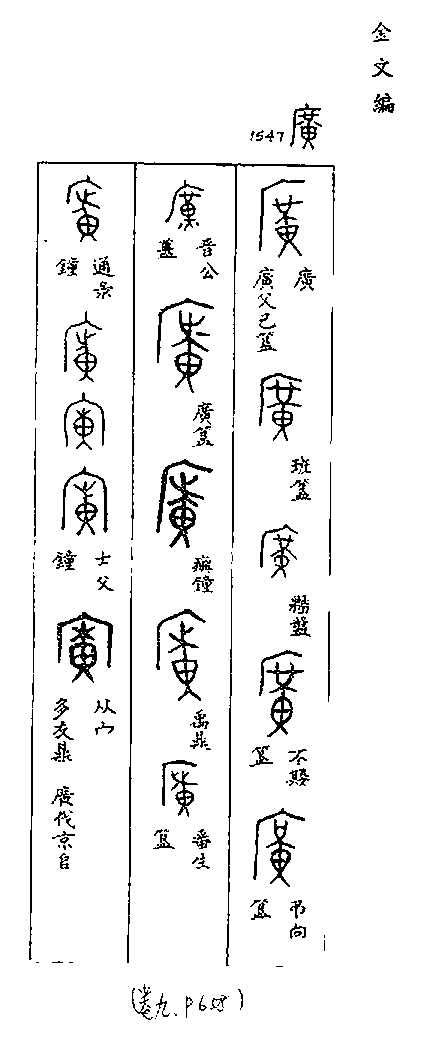 金文編
1547 廣
廣
廣父己簋
班簋
牆盤
不𡢁簋
弔向簋
晉公𥂴
廣簋
𤼈鐘
禹鼎
番生簋
通彔鐘
士父鐘
从宀
多友鼎 廣伐京𠂤
(卷九.P658)